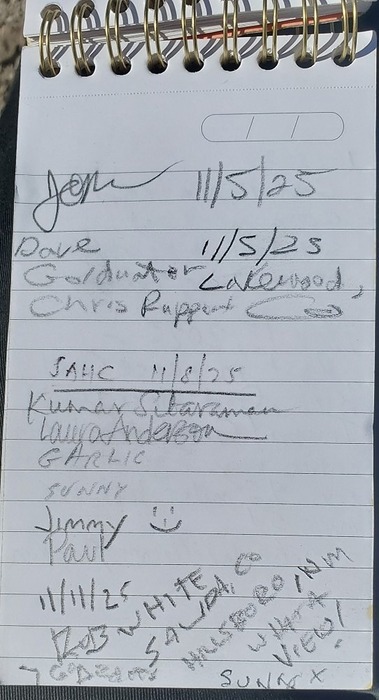 11/5/25
Dave 11/5/25
Lakewood,
Chris Ruppert
SAHC 11/8/25
Kumar Sitaraman
Laura Anderson
GARLIC
SUNNY
Jimmy :)
Paul
11/11/25
ROB WHITE
SALIDA, CO
HILLSBORO NM
WHAT A
VIEW!
SUNMX